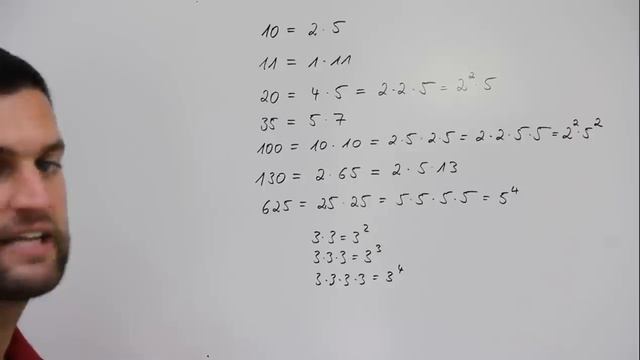 10 = 2 · 5
11 = 1 · 11
20 = 4 · 5 = 2 · 2 · 5 = 2² · 5
35 = 5 · 7
100 = 10 · 10 = 2 · 5 · 2 · 5 = 2 · 2 · 5 · 5 = 2² · 5²
130 = 2 · 65 = 2 · 5 · 13
625 = 25 · 25 = 5 · 5 · 5 · 5 = 5⁴
3 · 3 = 3²
3 · 3 · 3 = 3³
3 · 3 · 3 · 3 = 3⁴